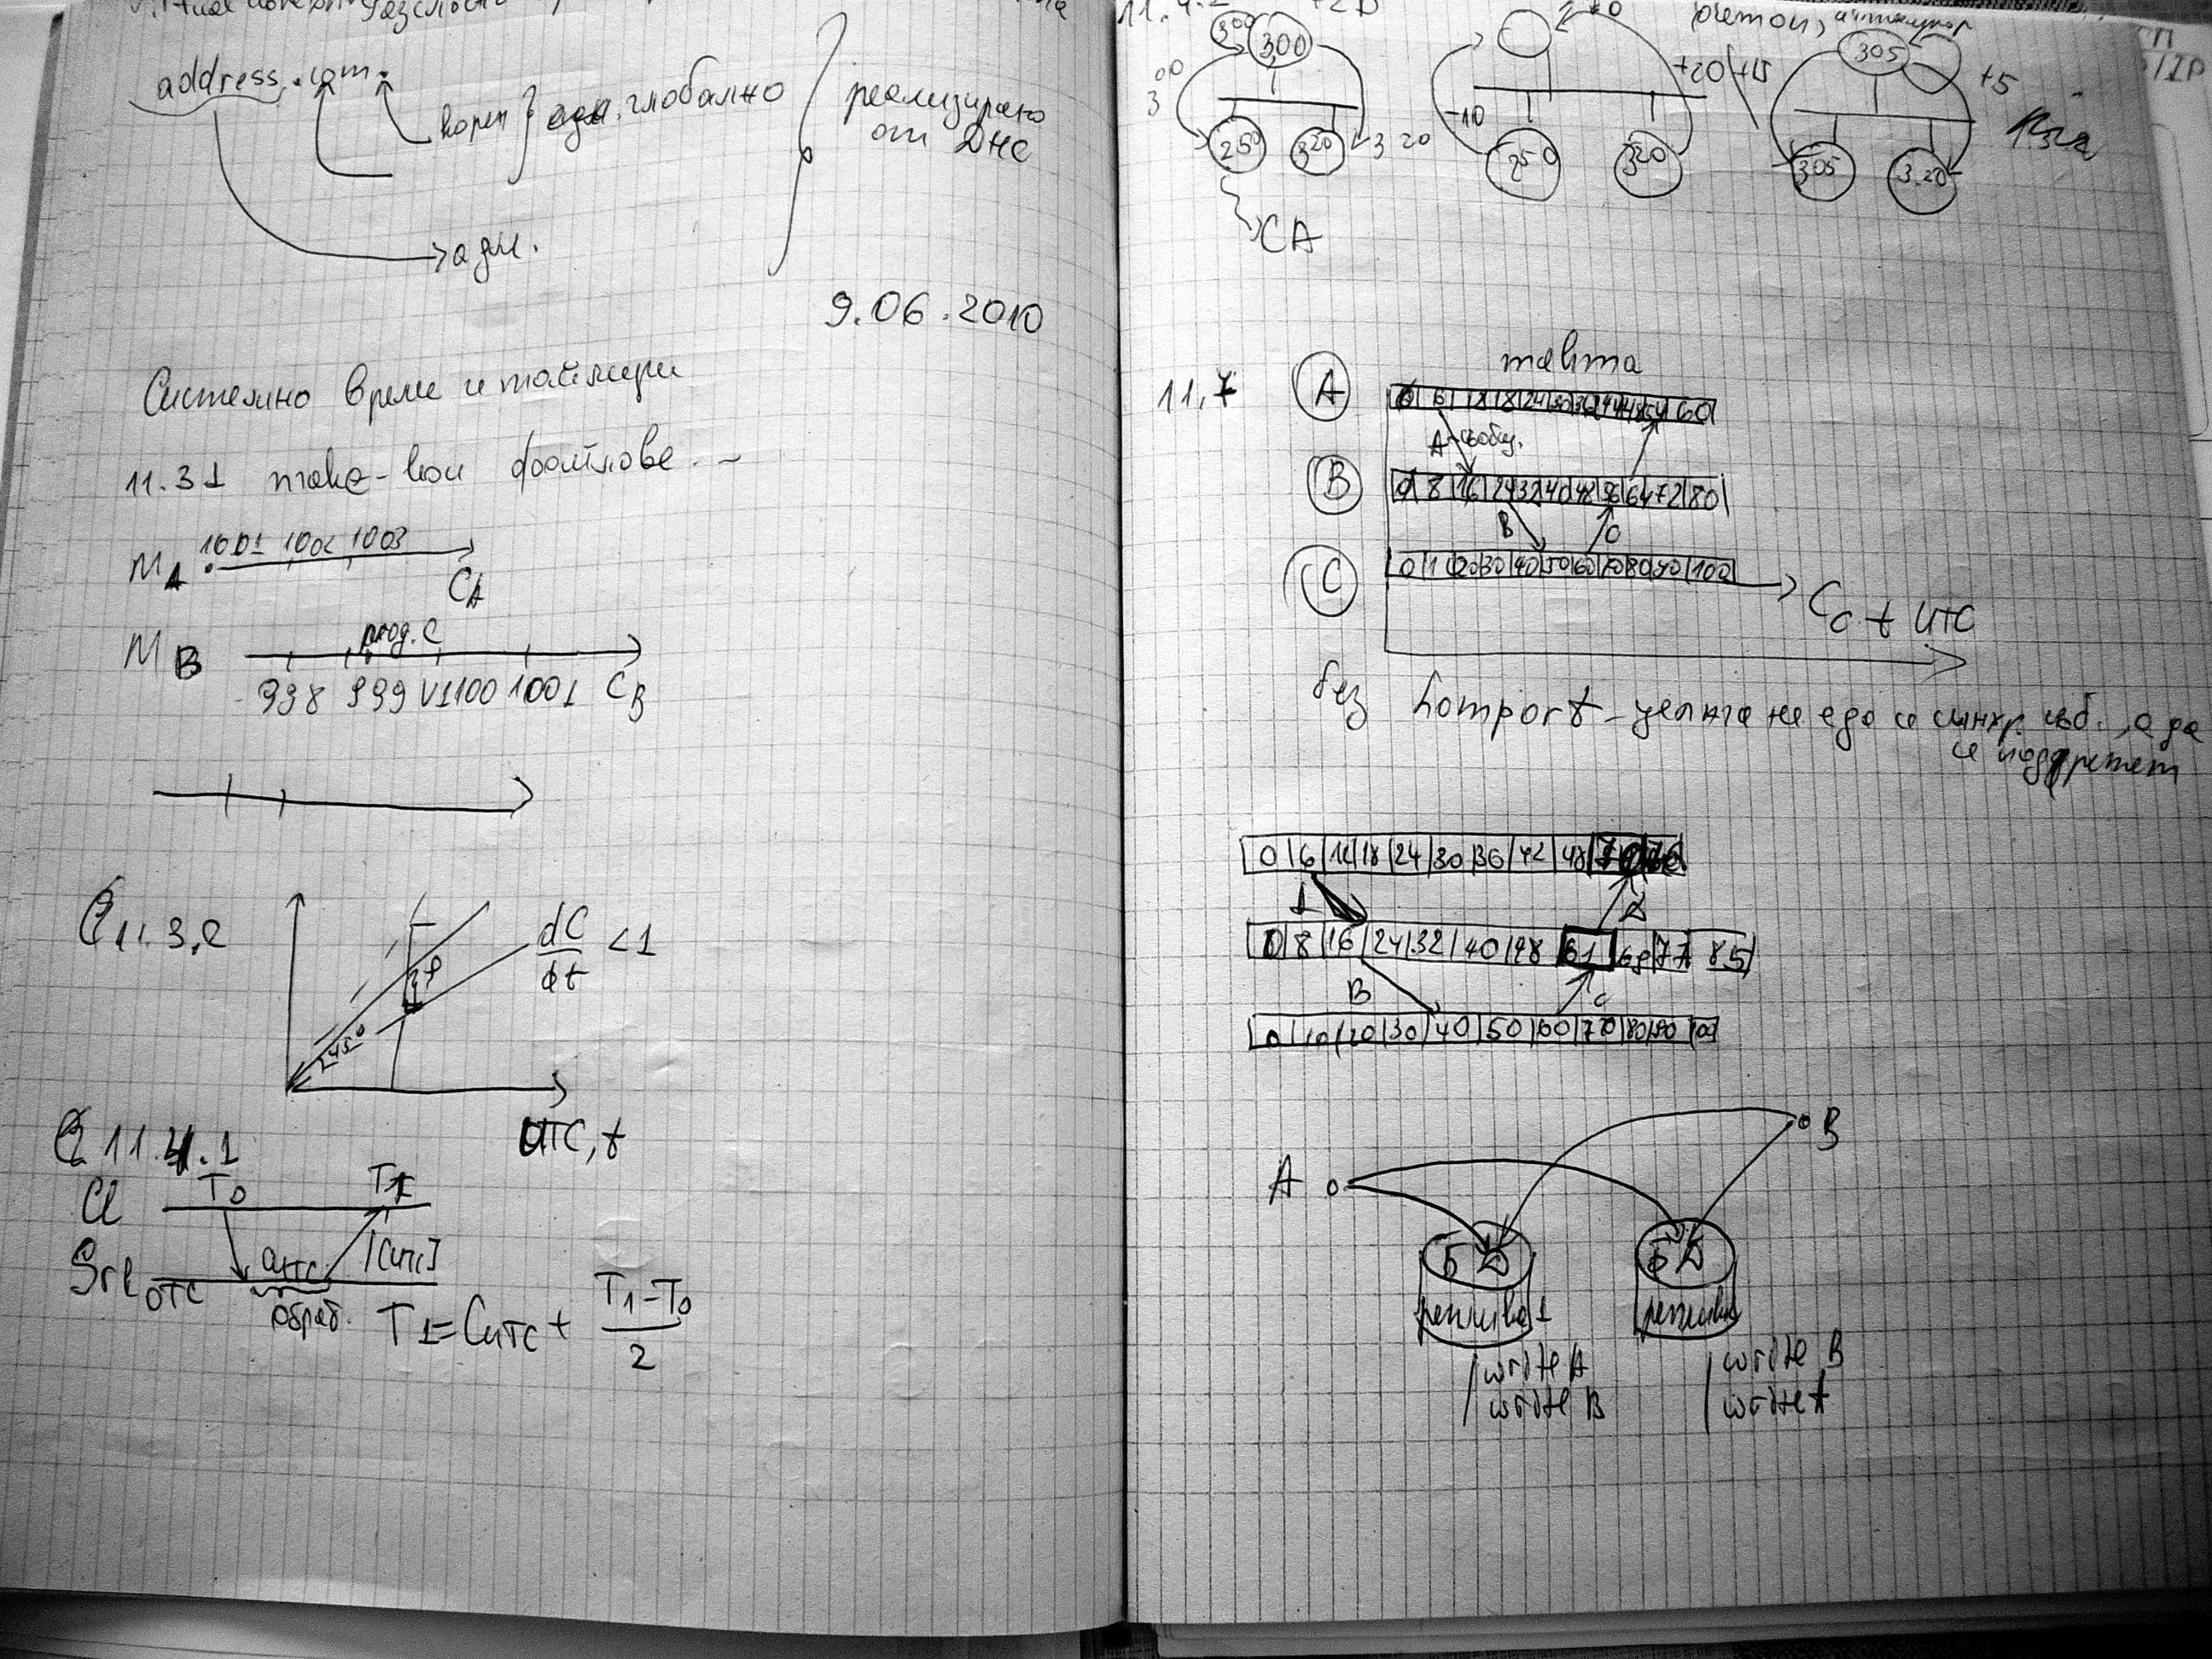 address.com.
корен
глобално
реализирано
от ДНС
адм.
9.06.2010
Системно време и таймери
11.31 make-кои файлове.
MA 1001 1002 1003
CA
MB prog.c
998 999 1100 1001 CB
11.3.2
dC/dt < 1
45°
UTC, t
11.4.1
Cl T0 T1
Srv UTC CUTC [CUTC]
обраб.
T1=CUTC + T1-T0/2
300 300
250 320 3 20
CA
-10 +20
250 320
305 +5
305 320
11.7
A
0 6 12 18 24 30 36 42 48 54 60
A-съобщ.
B
0 8 16 24 32 40 48 56 64 72 80
B C
C
0 10 20 30 40 50 60 70 80 90 100
Cc t UTC
без Lomport - целта не е да се синхр. съб., а да
се подредят
0 6 12 18 24 30 36 42 48 70 76
1 D
0 8 16 24 32 40 48 61 69 77 85
B C
0 10 20 30 40 50 60 70 80 90 100
A B
БД БД
реплика1 реплика
write A write B
write B write A